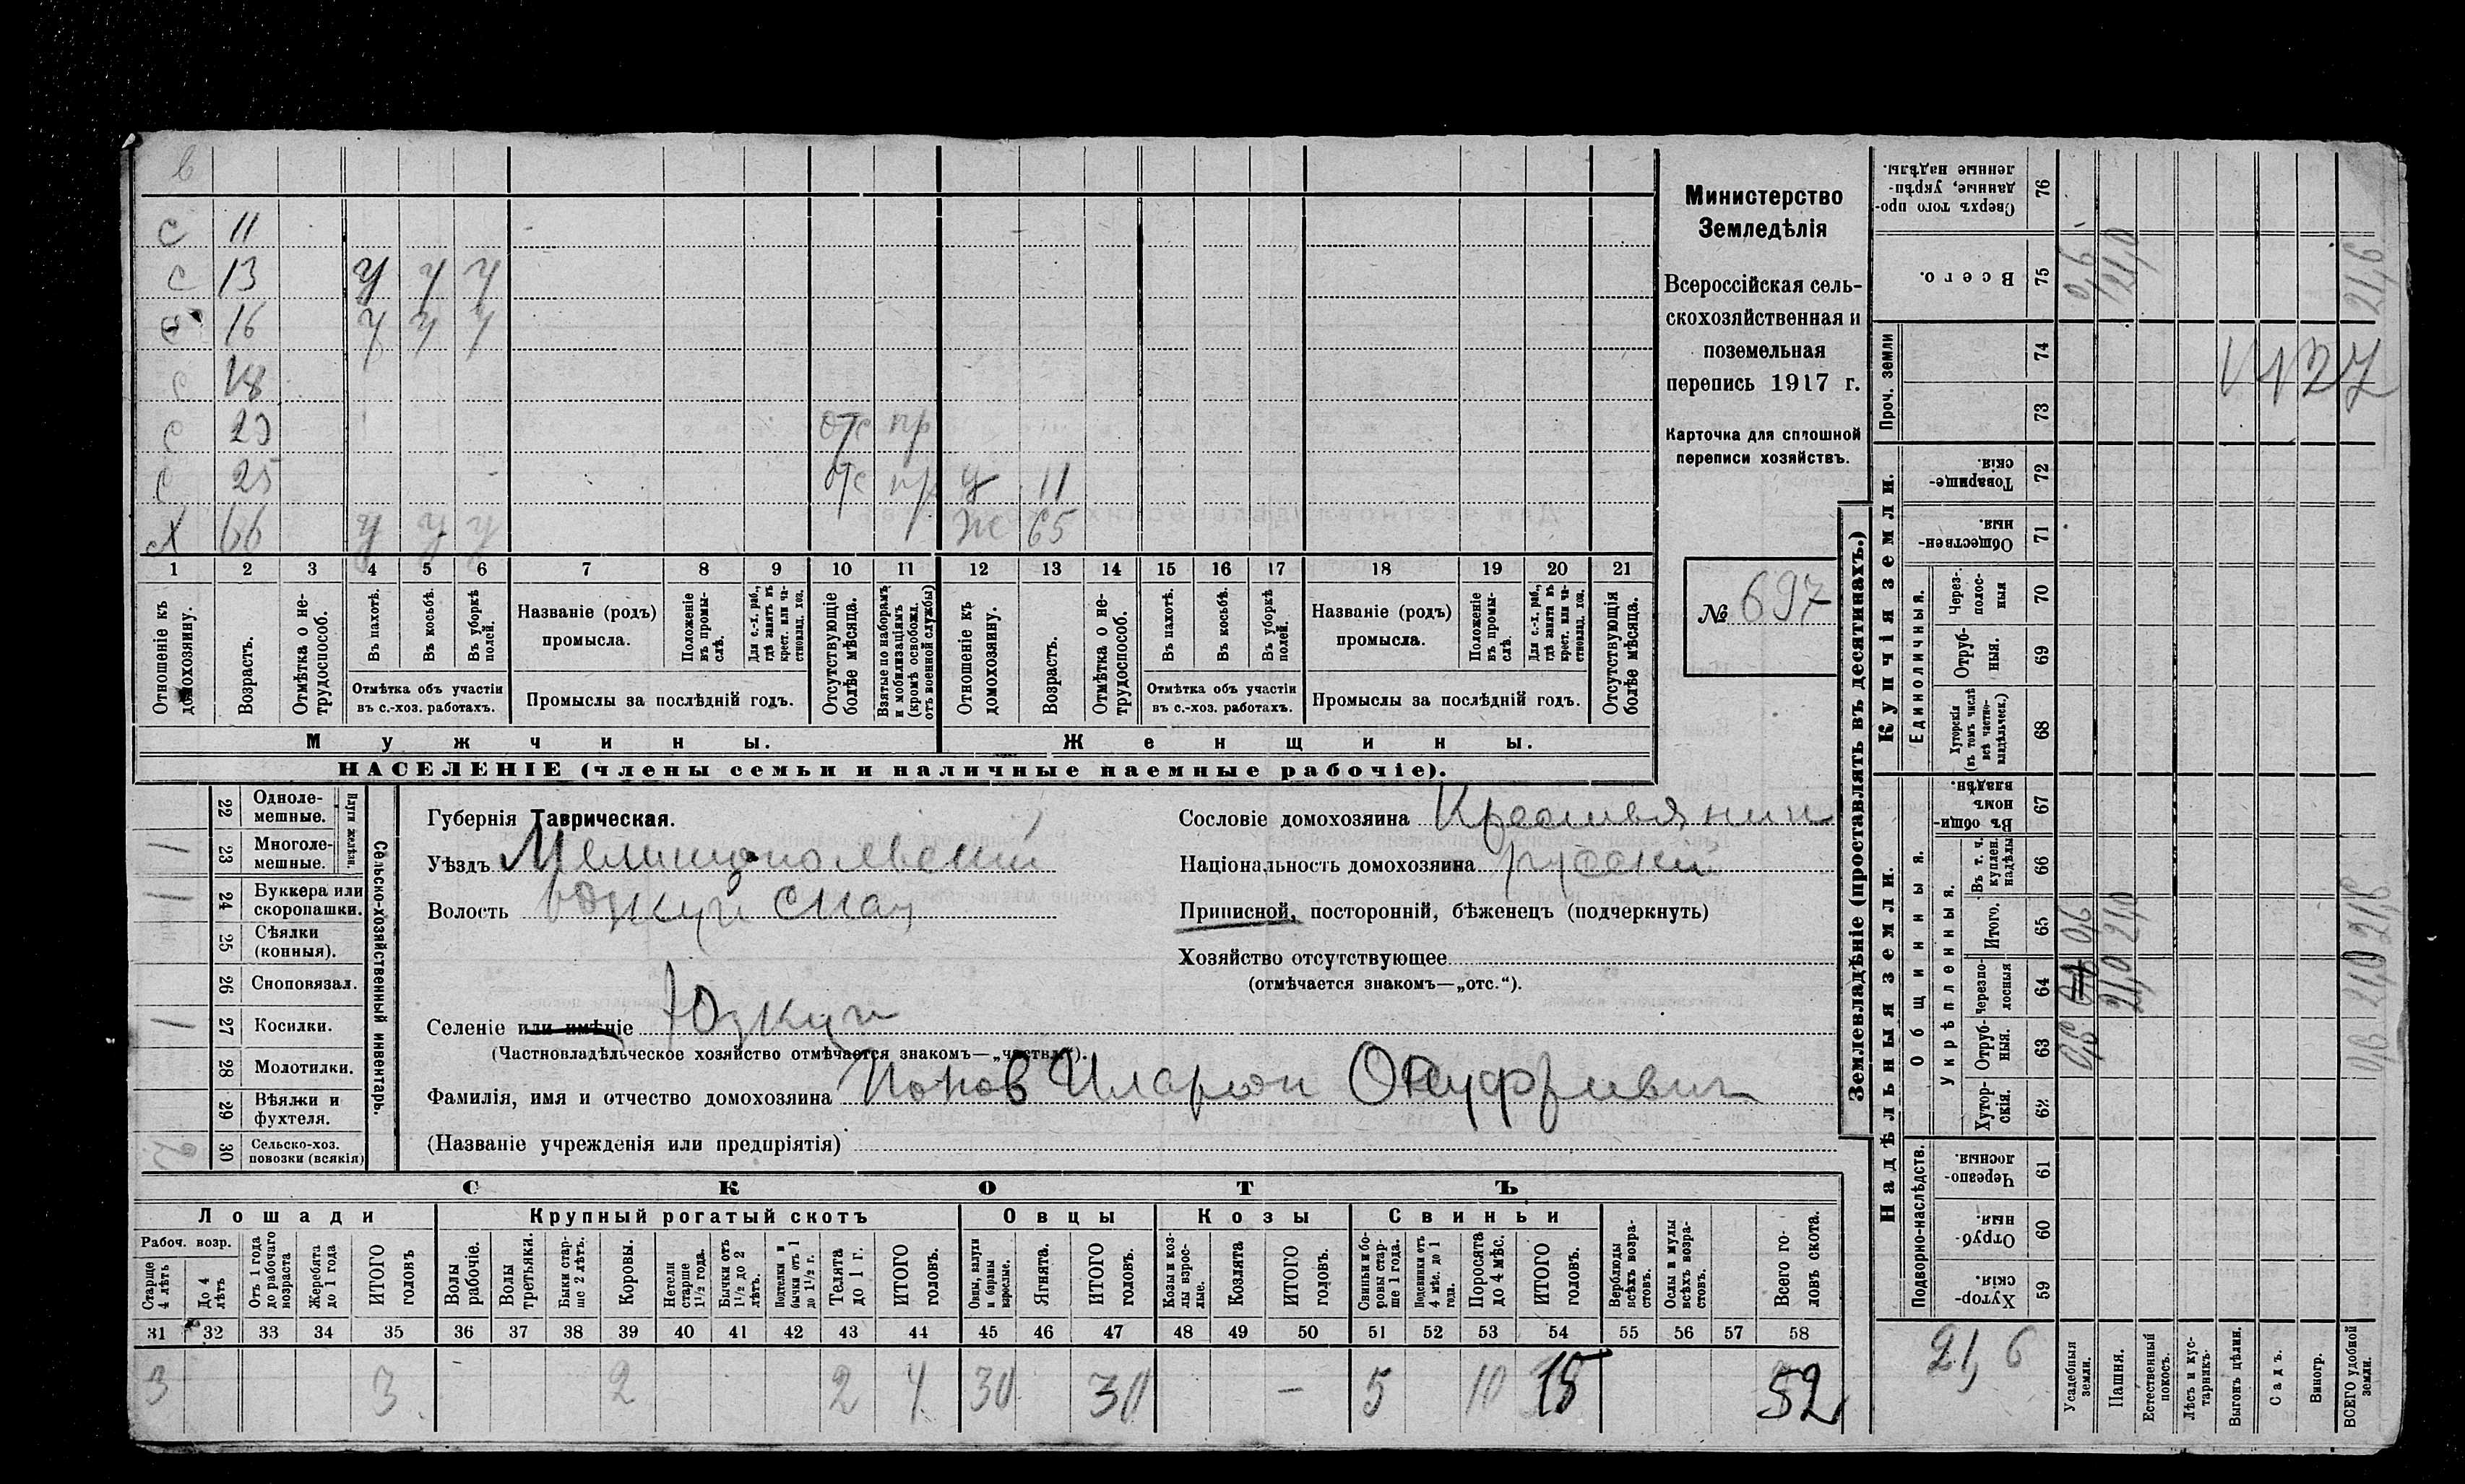 в
с 11
с 13 у у у
с 16 у у у
с 18
с 23 отс пр
с 25 отс пр у 11
х 66 у у у ж 65
1 2 3 4 5 6 7 8 9 10 11 12 13 14 15 16 17 18 19 20 21
Отношеніе къ домохозяину.
Возрастъ.
Отмѣтка о не-
трудоспособ.
Въ пахотѣ.
Въ косьбѣ.
Въ уборкѣ полей.
Отмѣтка объ участіи
въ с.-хоз. работахъ.
Названіе (родъ)
промысла.
Положеніе въ промы-
слѣ.
Для с.-х. раб., гдѣ занятъ въ крест. или ча-
стновлад. хоз.
Промыслы за послѣдній годъ.
Отсутствующіе болѣе мѣсяца.
Взятые по наборамъ и мобилизаціямъ (кромѣ освобожд. отъ военной службы)
Отношеніе къ домохозяину.
Возрастъ.
Отмѣтка о не-
трудоспособ.
Въ пахотѣ.
Въ косьбѣ.
Въ уборкѣ полей.
Отмѣтка объ участіи
въ с.-хоз. работахъ.
Названіе (родъ)
промысла.
Положеніе въ промы-
слѣ.
Для с.-х. раб., гдѣ занята въ крест. или ча-
стновлад. хоз.
Промыслы за послѣдній годъ.
Отсутствующія болѣе мѣсяца.
Мужчины.
Женщины.
НАСЕЛЕНІЕ (члены семьи и наличные наемные рабочіе).
Министерство
Земледѣлія
Всероссійская сель-
скохозяйственная и
поземельная
перепись 1917 г.
Карточка для сплошной
переписи хозяйствъ.
№ 697
22 Одноле-
мешные.
1 23 Многоле-
мешные.
Плуги желѣзн.
1 24 Буккера или
скоропашки.
25 Сѣялки
(конныя).
26 Сноповязал.
1 27 Косилки.
28 Молотилки.
29 Вѣялки и
фухтеля.
2 30 Сельско-хоз.
повозки (всякія)
Сельско-хозяйственный инвентарь.
Губернія Таврическая.
Уѣздъ Мелитопольский
Волость
Селеніе или имѣніе Юзкуи
(Частновладѣльческое хозяйство отмѣчается знакомъ—„частвл.“).
Фамилія, имя и отчество домохозяина Попов Иларион Онуфриевич
(Названіе учрежденія или предпріятія)
Сословіе домохозяина Крестьянин
Національность домохозяина русский
Приписной, посторонній, бѣженецъ (подчеркнуть)
Хозяйство отсутствующее
(отмѣчается знакомъ—„отс.“).
СКОТЪ
Лошади
Крупный рогатый скотъ
Овцы
Козы
Свиньи
Рабоч. возр.
Старше 4 лѣтъ
До 4 лѣтъ
Отъ 1 года до рабочаго возраста
Жеребята до 1 года
ИТОГО головъ
Волы рабочіе.
Волы третьяки.
Быки стар-
ше 2 лѣтъ.
Коровы.
Нетели старше 1½ года.
Бычки отъ 1½ до 2 лѣтъ.
Подтелки и бычки отъ 1 до 1½ г.
Телята до 1 г.
ИТОГО головъ.
Овцы, валухи и бараны взрослые.
Ягнята.
ИТОГО головъ.
Козы и коз-
лы взрос-
лые.
Козлята
ИТОГО головъ.
Свиньи и бо-
ровы стар-
ше 1 года.
Подсвинки отъ 4 мѣс. до 1 года.
Поросята до 4 мѣс.
ИТОГО головъ.
Верблюды всѣхъ возра-
стовъ.
Ослы и мулы всѣхъ возра-
стовъ.
Всего го-
ловъ скота.
31 32 33 34 35 36 37 38 39 40 41 42 43 44 45 46 47 48 49 50 51 52 53 54 55 56 57 58
3 3 2 2 4 30 30 — 5 10 15 52
Землевладѣніе (проставлять въ десятинахъ.)
Сверхъ того про-
данные, укрѣп-
ленные надѣлы.
76
Всего.
75 0,6 21,0 21,6
Проч. земли
74
73
Купчія земли.
Товарище-
скія.
72
Обществен-
ныя.
71
Единоличныя.
Через-
полос-
ныя
70
Отруб-
ныя.
69
Хуторскія
(въ томъ числѣ всѣ частно-
владѣльческ.)
68
Надѣльныя земли.
Общинныя.
Въ общи-
номъ владѣн.
67
Укрѣпленныя.
Въ т. ч. куплен. надѣлы
66
Итого.
65 0,6 21,0 21,6
Черезпо-
лосныя
64 21,0 21,0
Отруб-
ныя.
63 0,6 0,6
Хутор-
скія.
62
Подворно-наслѣдств.
Черезпо-
лосныя.
61
Отруб-
ныя.
60
Хутор-
скія.
59
21,6
Усадебныя земли.
Пашня.
Естественный покосъ.
Лѣсъ и кус-
тарникъ.
Выгонъ цѣлин.
Садъ.
Виногр.
ВСЕГО удобной земли.